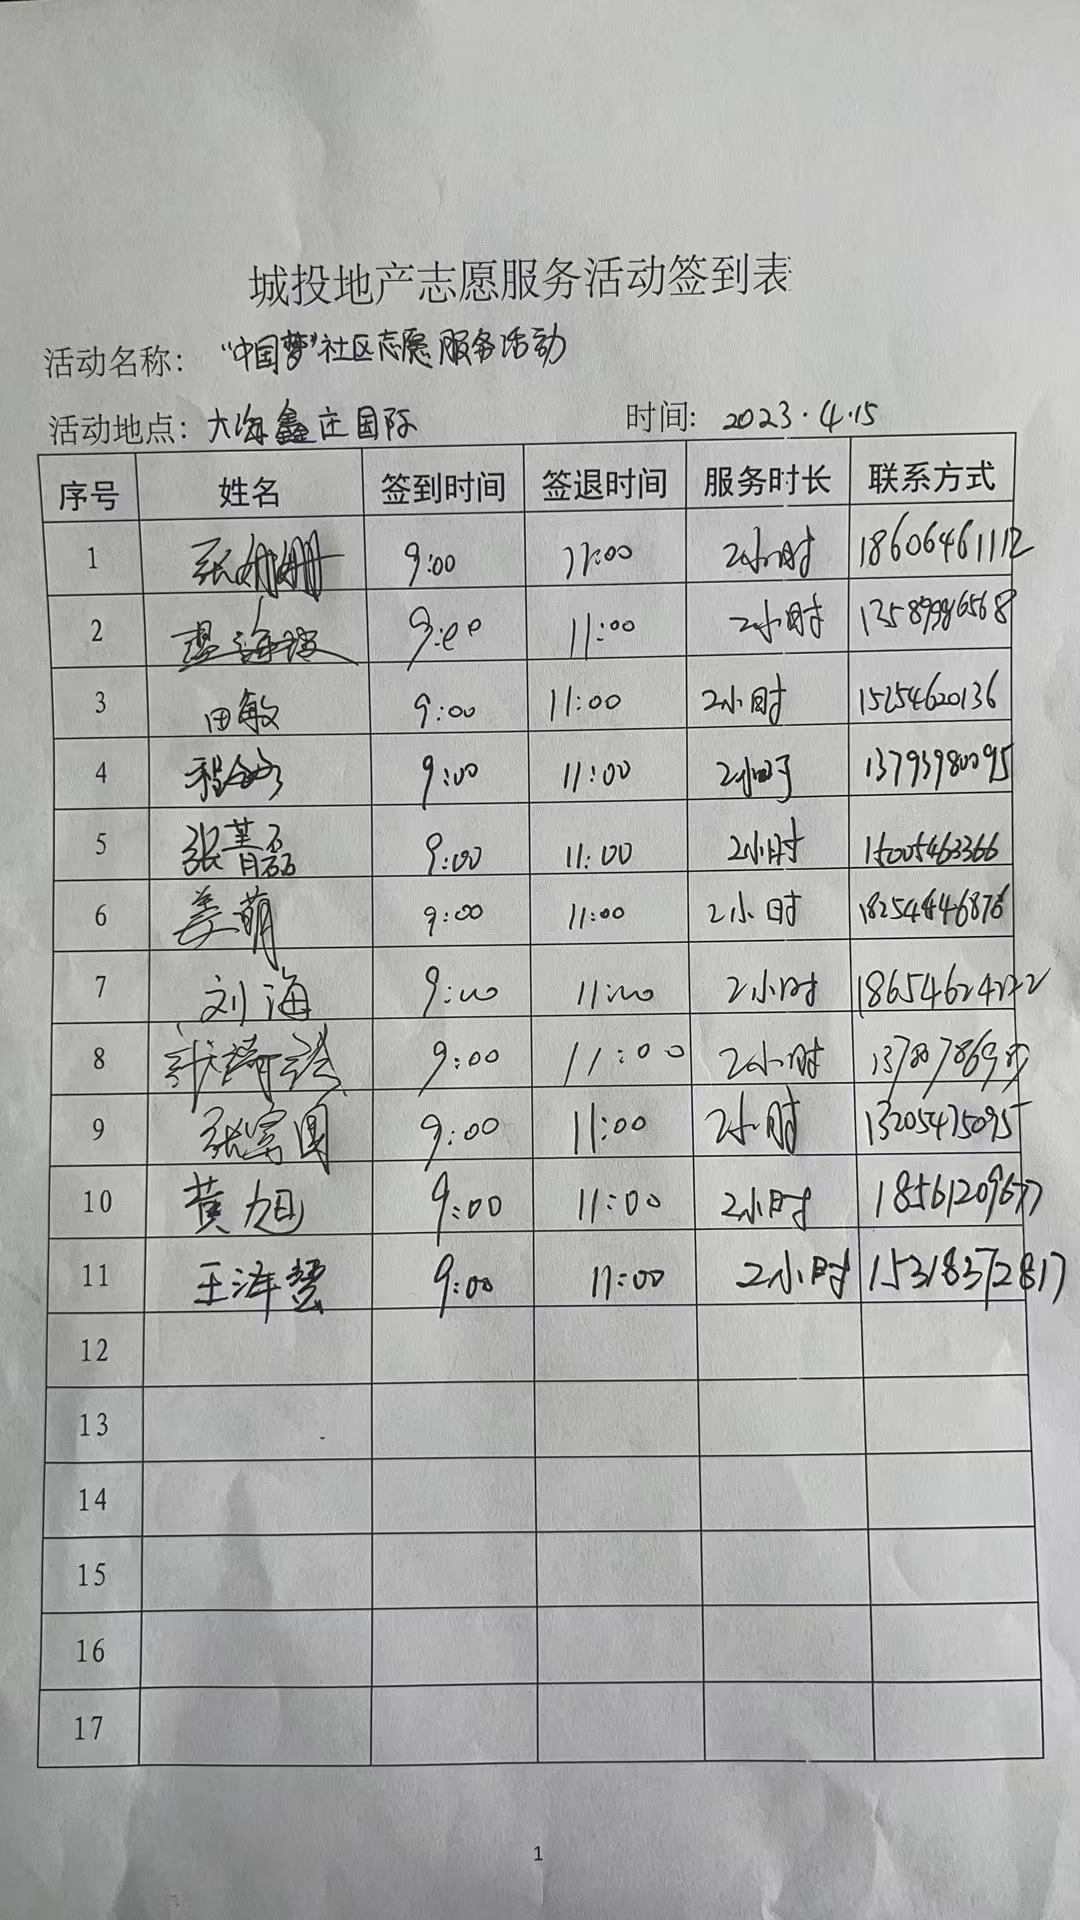 城投地产志愿服务活动签到表
活动名称：“中国梦”社区志愿服务活动
活动地点：大海鑫庄国际 时间：2023.4.15
序号 姓名 签到时间 签退时间 服务时长 联系方式
1 张姗姗 9:00 11:00 2小时 18606461112
2 9:00 11:00 2小时
3 田敏 9:00 11:00 2小时 15254620136
4 9:00 11:00 2小时 13793980095
5 张菁磊 9:00 11:00 2小时 15005463366
6 姜萌 9:00 11:00 2小时 18254646876
7 刘海 9:00 11:00 2小时
8 9:00 11:00 2小时
9 9:00 11:00 2小时 13205475095
10 黄旭 9:00 11:00 2小时 18561209677
11 9:00 11:00 2小时 15318372817
12
13
14
15
16
17
1